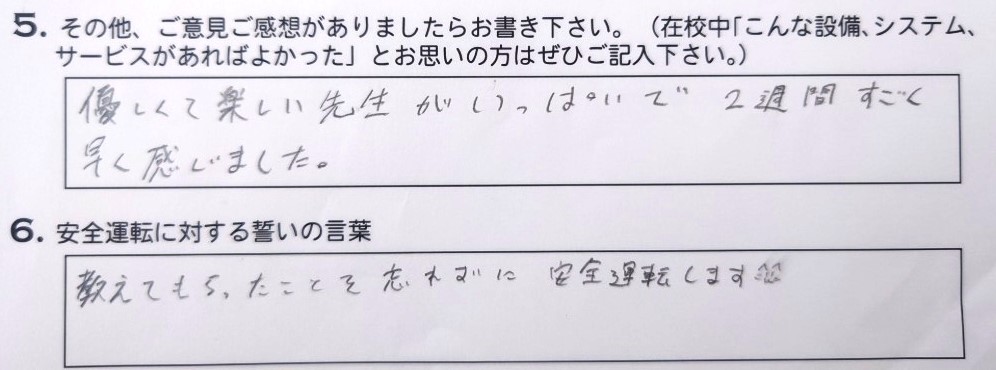 5. その他、ご意見ご感想がありましたらお書き下さい。（在校中「こんな設備、システム、
サービスがあればよかった」とお思いの方はぜひご記入下さい。）
優しくて楽しい先生がいっぱいで 2週間すごく
早く感じました。
6. 安全運転に対する誓いの言葉
教えてもらったことを忘れずに 安全運転します